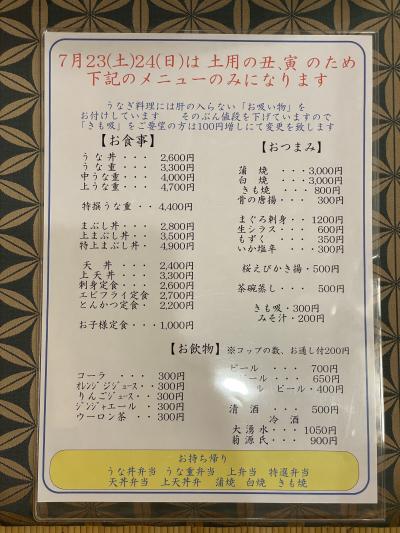 7月23(土)24(日)は 土用の丑、寅 のため
下記のメニューのみになります
うなぎ料理には肝の入らない「お吸い物」を
お付けしています そのぶん値段を下げていますので
「きも吸」をご要望の方は100円増しにて変更を致します
【お食事】
うな丼・・・ 2,600円
うな重・・・ 3,300円
中うな重・・ 4,000円
上うな重・・ 4,700円
特撰うな重・・ 4,400円
まぶし丼・・ 2,800円
上まぶし丼・・ 3,500円
特上まぶし丼・ 4,900円
天 丼・・ 2,400円
上天丼・・ 3,300円
刺身定食・・ 2,600円
エビフライ定食 2,700円
とんかつ定食・ 2,200円
お子様定食・・・1,000円
【おつまみ】
蒲 焼 ・・・3,000円
白 焼 ・・・3,000円
きも焼 ・・・ 800円
骨の唐揚・・・ 300円
まぐろ刺身・・ 1200円
生シラス・・・ 600円
もずく ・・・ 350円
いか塩辛・・・ 300円
桜えびかき揚・500円
茶碗蒸し・・・ 500円
きも吸・300円
みそ汁・200円
【お飲物】 ※コップの数、お通し付200円
コーラ ・・・ 300円
オレンジジュース・・300円
りんごジュース・・300円
ジンジャエール・・300円
ウーロン茶・・・300円
ビール ・・・ 700円
ール・・・ 650円
ル ビール・400円
清 酒 ・・・ 500円
冷 酒
大湧水・・・1050円
菊源氏・・・ 900円
お持ち帰り
うな丼弁当 うな重弁当 上弁当 特選弁当
天丼弁当 上天丼弁 蒲焼 白焼 きも焼